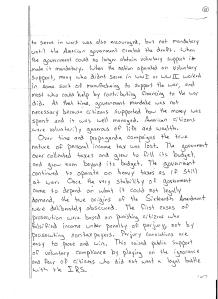 to serve in wars was also encouraged, but not mandatory
until the American government created the draft. When
the government could no longer obtain voluntary support it
make it mandatory. When the nation operated on voluntary
support, many who didnt serve in WW I or WW II worked
in some sort of manufacturing to support the war, and
most who could help by contributing financing to the war
did. At that time, government mandate was not
necessary because citizens supported how the money was
spent and it was well managed. American citizens
were voluntarily generous of life and wealth.
Over time and propaganda campaigns the true
nature of personal income tax was lost. The government
over collected taxes and grew to fill its budget,
and grew even beyond its budget. The government
continued to operate on heavy taxes as if still
at war. Once the very stability of government
came to depend on what it could not legally
demand, the true origins of the Sixteenth Amendment
were deliberately obscured. The first cases of
prosecution were based on punishing citizens who
falsified income under penalty of perjury, not by
prosecuting nontaxpayers. Perjury convictions are
easy to prove and win. This raised public support
of voluntary compliance by playing on the ignorance
and fear of citizens who did not want a legal battle
with the I.R.S.